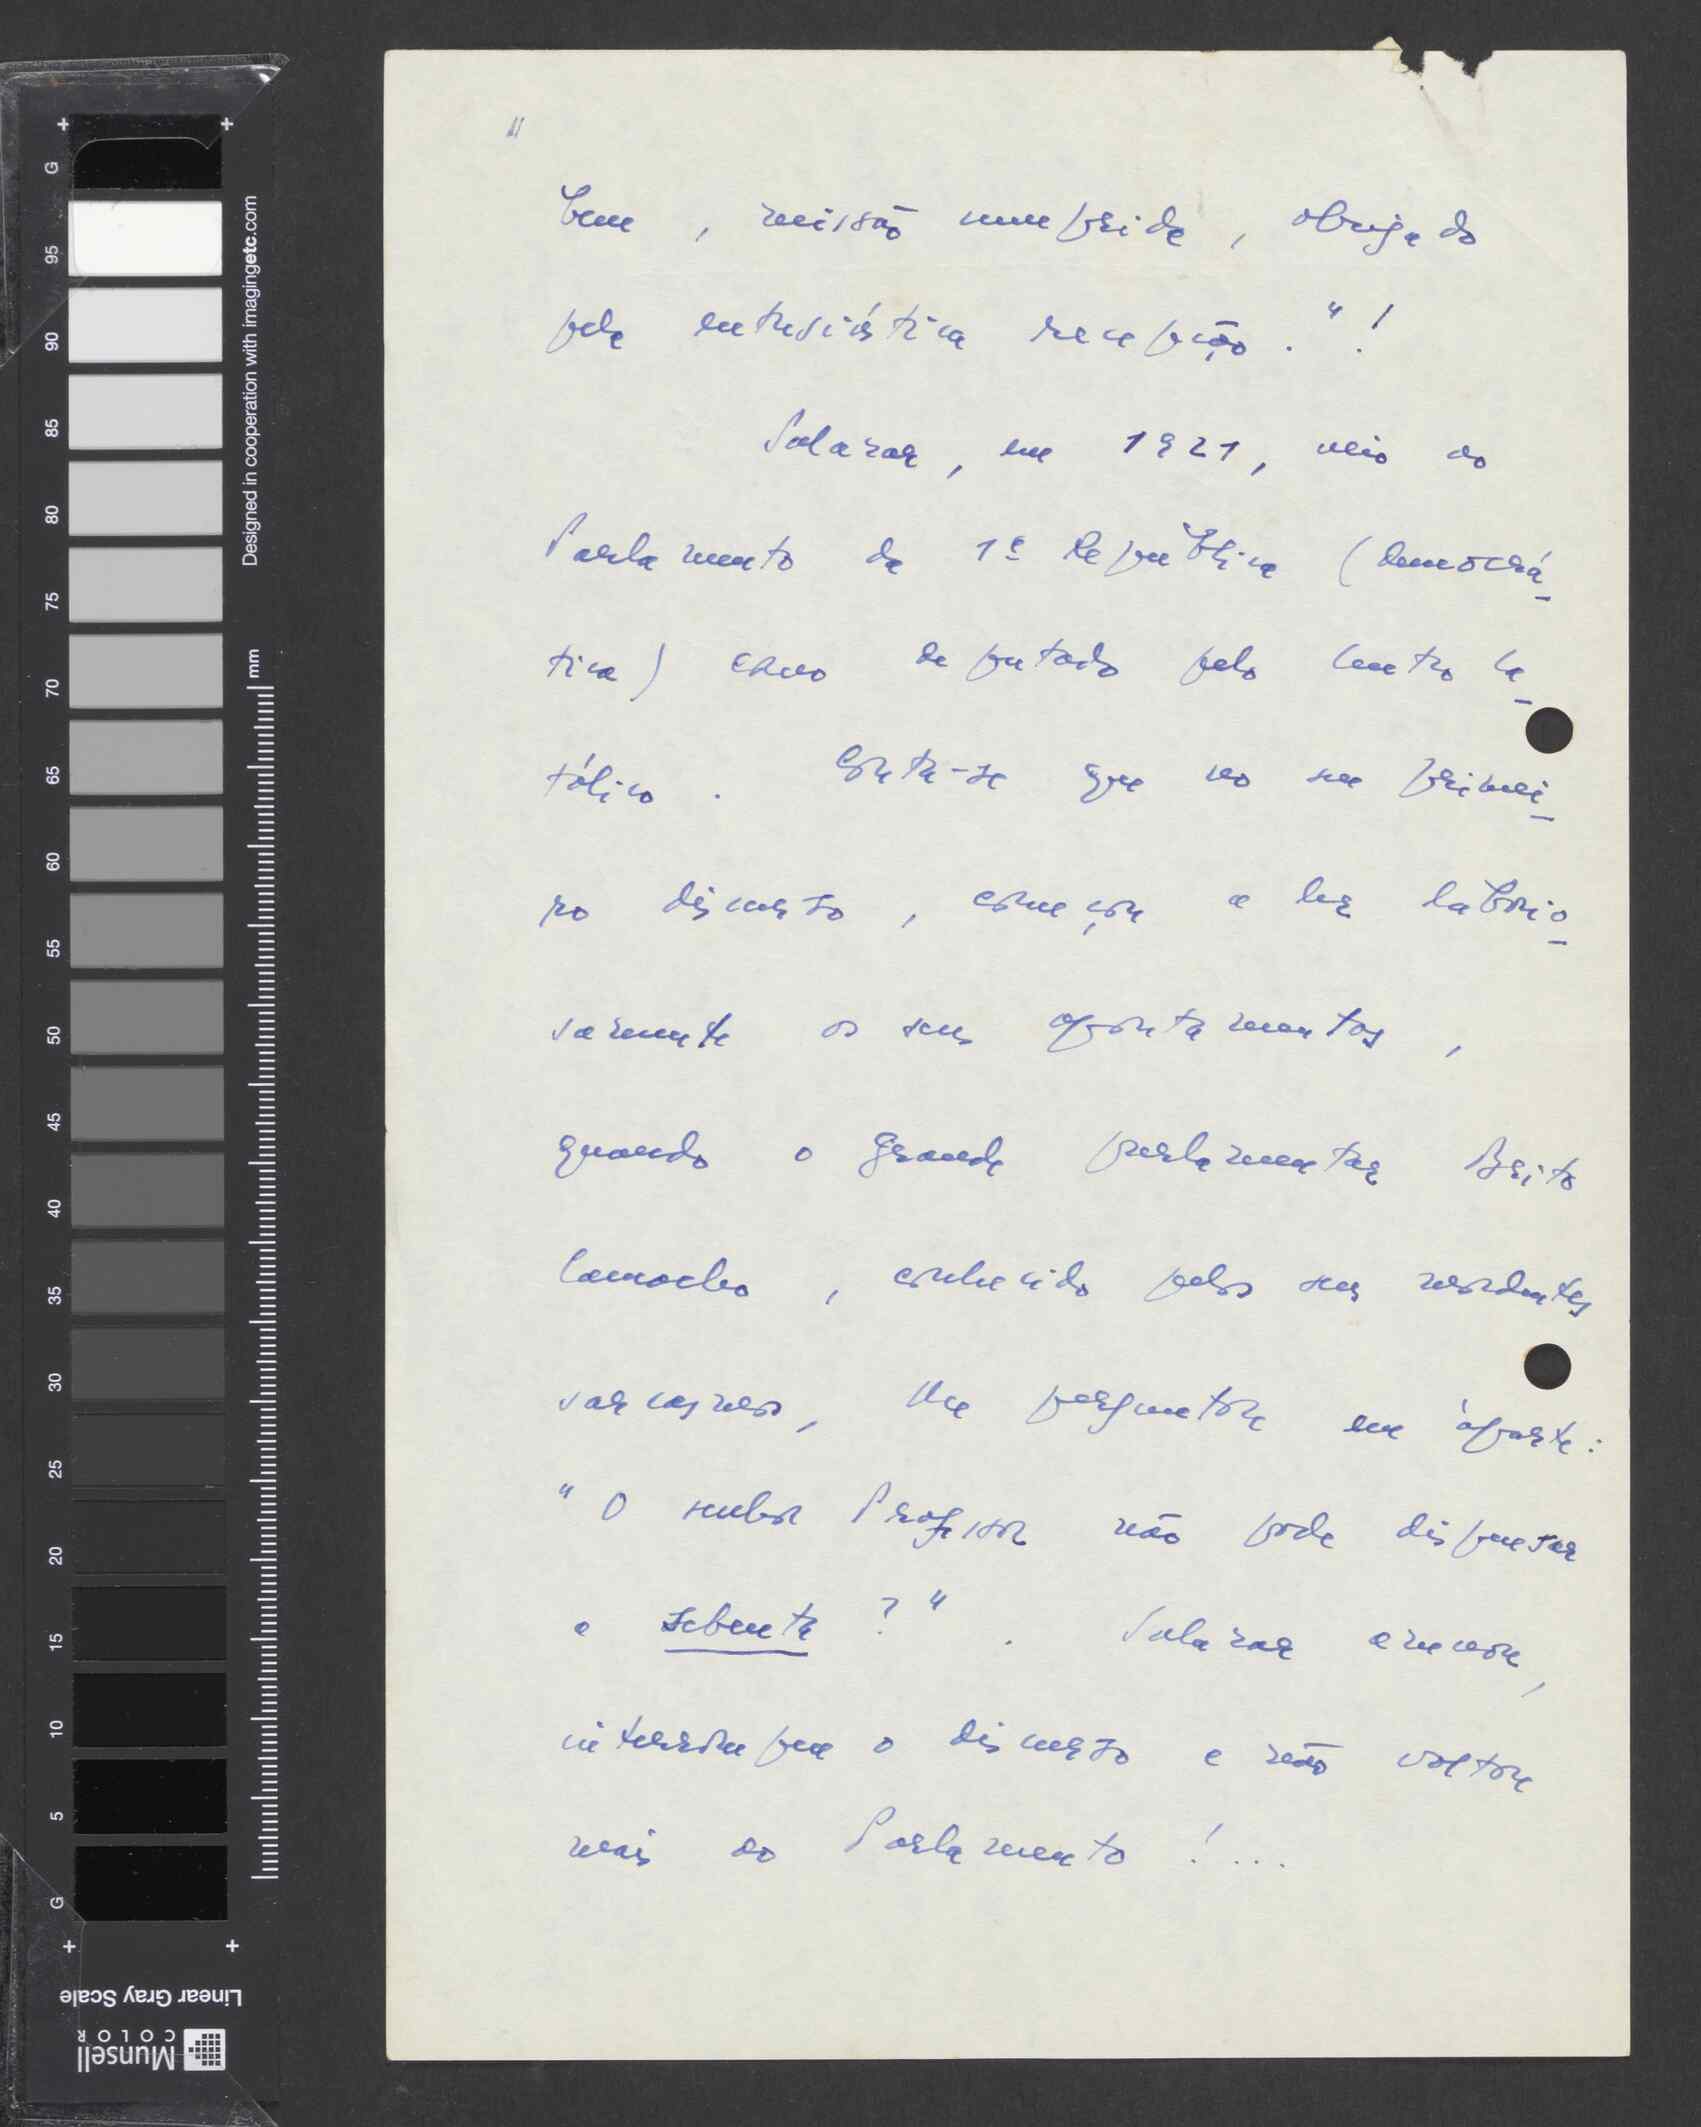 "
bem, missão cumprida, obrigado
pela entusiástica recepção."!
Salazar, em 1921, veio ao
Parlamento da 1ª República (democrá-
tica) como deputado pelo Centro Ca-
tólico. Conta-se que no seu primei-
ro discurso, começou a ler laborio-
samente os seus apontamentos,
quando o grande parlamentar Brito
Camacho, conhecido pelos seus mordentes
sarcasmos, lhe perguntou em àparte:
"O senhor Professor não pode dispensar
a sebenta?". Salazar amuou,
interrompeu o discurso e não voltou
mais ao Parlamento!...
G
95
90
85
80
75
70
65
60
55
50
45
40
35
30
25
20
15
10
5
G
Designed in cooperation with imagingetc.com
mm
Linear Gray Scale
Munsell
COLOR